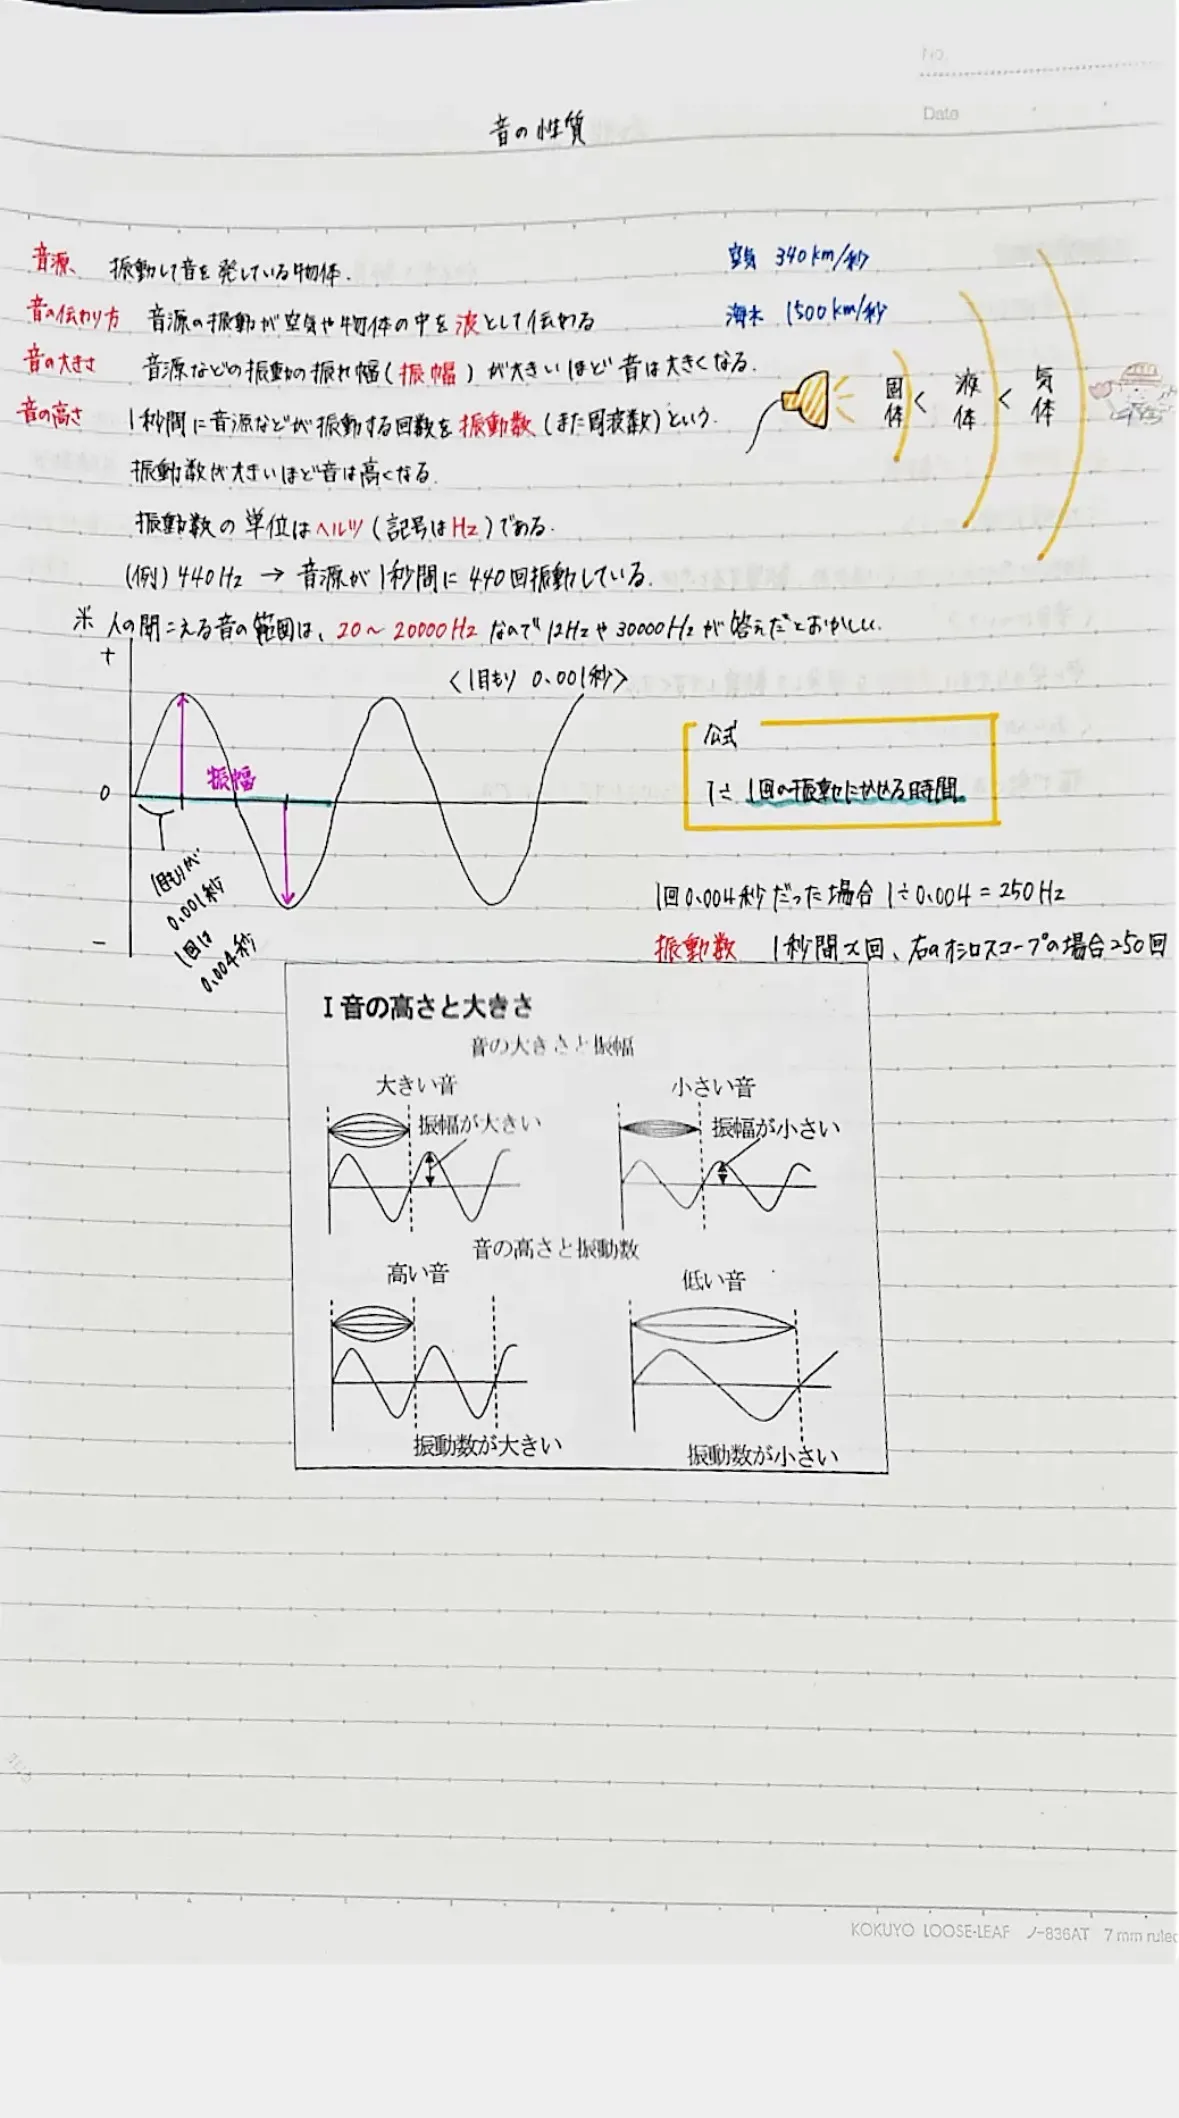 No.
Date
音の性質
音源 振動して音を発している物体.
空気 340km/秒
音の伝わり方 音源の振動が空気や物体の中を波として伝わる
海水 1500km/秒
音の大きさ 音源などの振動の振れ幅(振幅)が大きいほど音は大きくなる.
固体 < 液体 < 気体
音の高さ 1秒間に音源などが振動する回数を振動数(また周波数)という.
振動数が大きいほど音は高くなる.
振動数の単位はヘルツ(記号はHz)である.
(例) 440Hz → 音源が1秒間に440回振動している.
※ 人の聞こえる音の範囲は、20〜20000Hzなので12Hzや30000Hzが答えだとおかしい.
+
<1目もり 0.001秒>
公式
振幅
0
1÷1回の振動にかかる時間
1目もりが
0.001秒
1回は
0.004秒
−
1回0.004秒だった場合 1÷0.004=250Hz
振動数 1秒間×回、右のオシロスコープの場合250回
I 音の高さと大きさ
音の大きさと振幅
大きい音 小さい音
振幅が大きい 振幅が小さい
音の高さと振動数
高い音 低い音
振動数が大きい 振動数が小さい
KOKUYO LOOSE-LEAF ノ-836AT 7 mm ruled